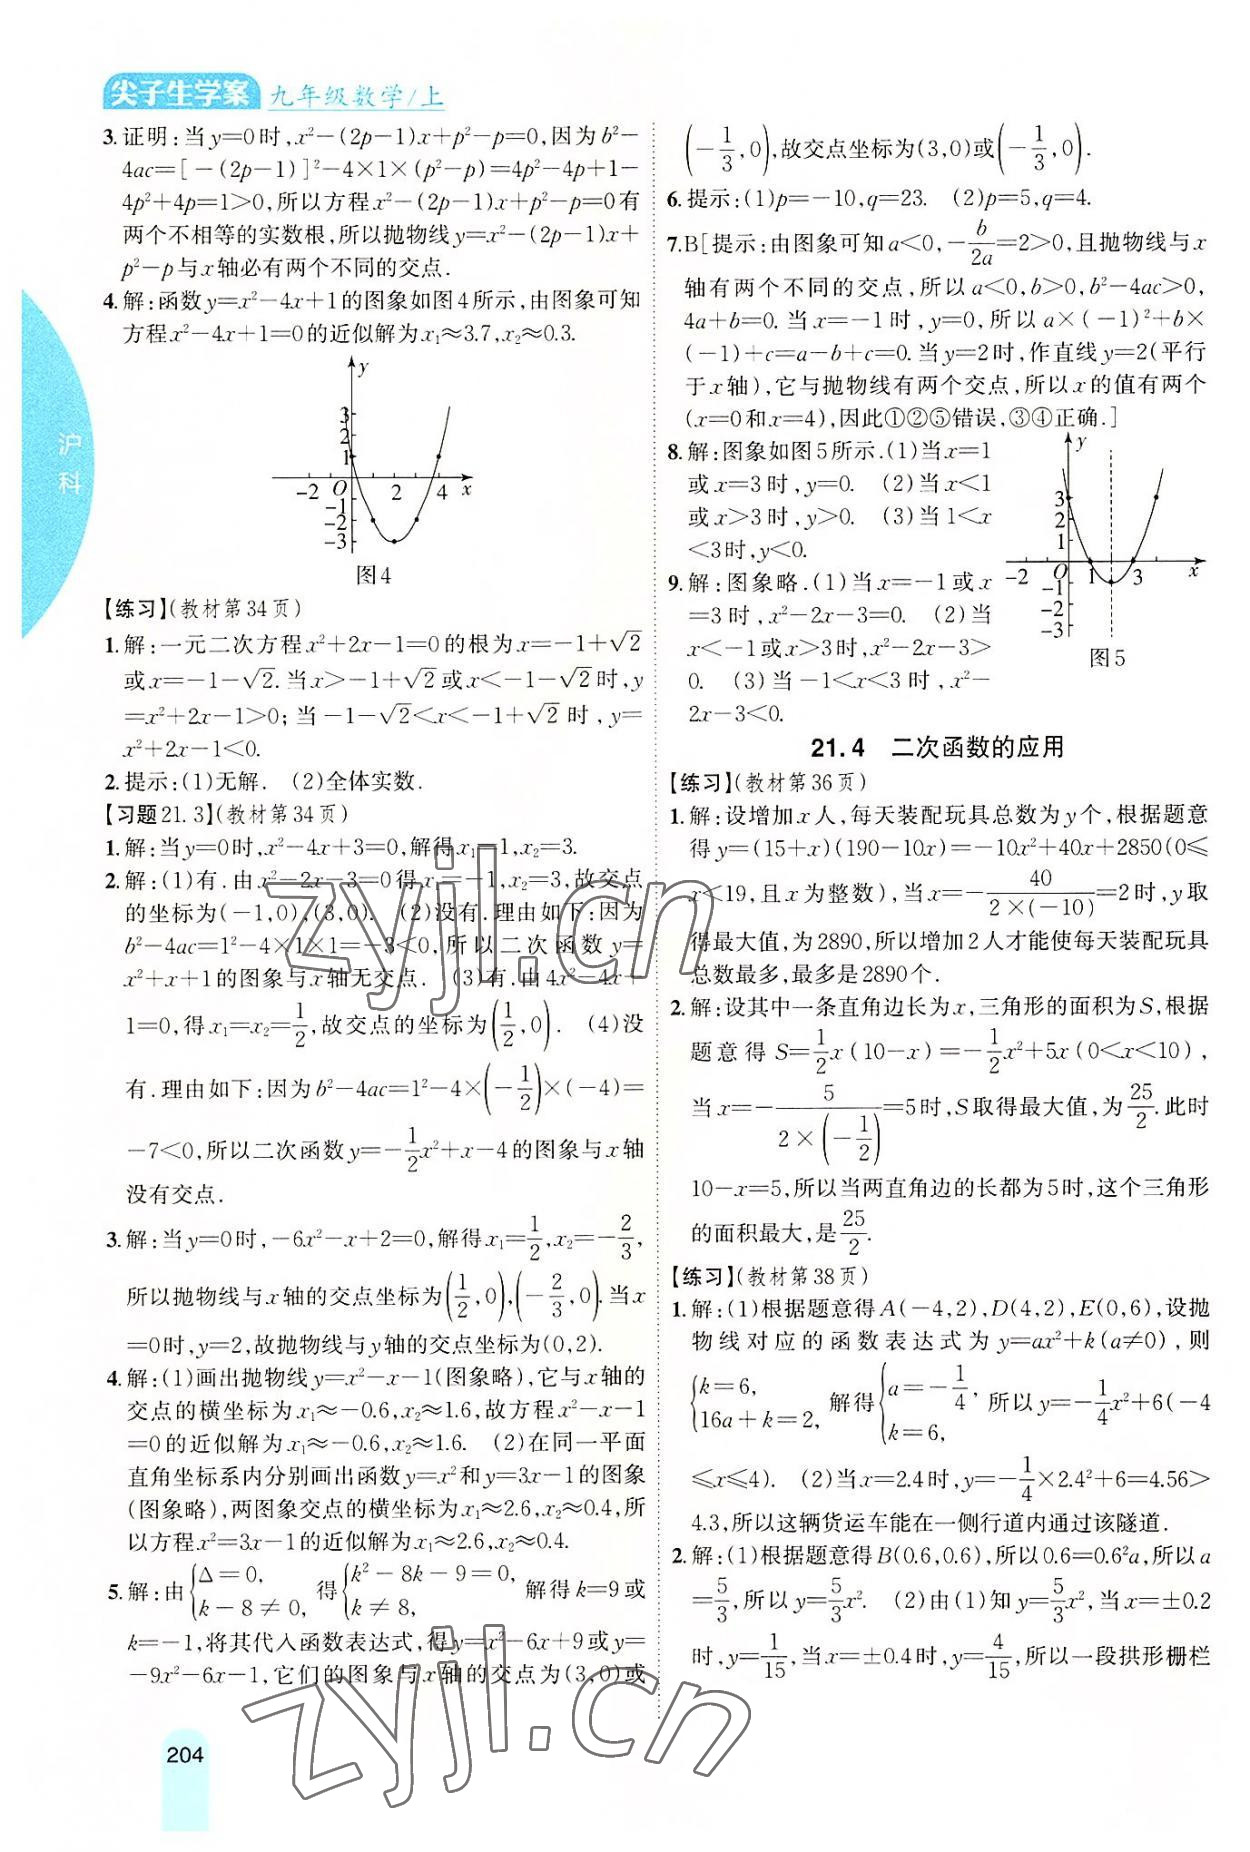 尖子生学案 九年级数学/上
沪科
3.证明:当y=0时,x²-(2p-1)x+p²-p=0,因为b²-
4ac=[-(2p-1)]²-4×1×(p²-p)=4p²-4p+1-
4p²+4p=1>0,所以方程x²-(2p-1)x+p²-p=0有
两个不相等的实数根,所以抛物线y=x²-(2p-1)x+
p²-p与x轴必有两个不同的交点.
4.解:函数y=x²-4x+1的图象如图4所示,由图象可知
方程x²-4x+1=0的近似解为x₁≈3.7,x₂≈0.3.
y
3
2
1
-2 O 2 4 x
-1
-2
-3
图4
【练习】(教材第34页)
1.解:一元二次方程x²+2x-1=0的根为x=-1+√2
或x=-1-√2.当x>-1+√2或x<-1-√2时,y
=x²+2x-1>0;当-1-√2<x<-1+√2时,y=
x²+2x-1<0.
2.提示:(1)无解. (2)全体实数.
【习题21.3】(教材第34页)
1.解:当y=0时,x²-4x+3=0,解得x₁=1,x₂=3.
2.解:(1)有.由x²-2x-3=0得x₁=-1,x₂=3,故交点
的坐标为(-1,0),(3,0). (2)没有.理由如下:因为
b²-4ac=1²-4×1×1=-3<0,所以二次函数y=
x²+x+1的图象与x轴无交点. (3)有.由4x²-4x+
1=0,得x₁=x₂=1/2,故交点的坐标为(1/2,0). (4)没
有.理由如下:因为b²-4ac=1²-4×(-1/2)×(-4)=
-7<0,所以二次函数y=-1/2x²+x-4的图象与x轴
没有交点.
3.解:当y=0时,-6x²-x+2=0,解得x₁=1/2,x₂=-2/3,
所以抛物线与x轴的交点坐标为(1/2,0),(-2/3,0).当x
=0时,y=2,故抛物线与y轴的交点坐标为(0,2).
4.解:(1)画出抛物线y=x²-x-1(图象略),它与x轴的
交点的横坐标为x₁≈-0.6,x₂≈1.6,故方程x²-x-1
=0的近似解为x₁≈-0.6,x₂≈1.6. (2)在同一平面
直角坐标系内分别画出函数y=x²和y=3x-1的图象
(图象略),两图象交点的横坐标为x₁≈2.6,x₂≈0.4,所
以方程x²=3x-1的近似解为x₁≈2.6,x₂≈0.4.
5.解:由{Δ=0, k-8≠0, 得{k²-8k-9=0, k≠8, 解得k=9或
k=-1,将其代入函数表达式,得y=x²-6x+9或y=
-9x²-6x-1,它们的图象与x轴的交点为(3,0)或
(-1/3,0),故交点坐标为(3,0)或(-1/3,0).
6.提示:(1)p=-10,q=23. (2)p=5,q=4.
7.B[提示:由图象可知a<0,-b/2a=2>0,且抛物线与x
轴有两个不同的交点,所以a<0,b>0,b²-4ac>0,
4a+b=0.当x=-1时,y=0,所以a×(-1)²+b×
(-1)+c=a-b+c=0.当y=2时,作直线y=2(平行
于x轴),它与抛物线有两个交点,所以x的值有两个
(x=0和x=4),因此①②⑤错误,③④正确.]
8.解:图象如图5所示.(1)当x=1
或x=3时,y=0. (2)当x<1
或x>3时,y>0. (3)当1<x
<3时,y<0.
y
3
2
1
-2 O 1 3 x
-1
-2
-3
图5
9.解:图象略.(1)当x=-1或x
=3时,x²-2x-3=0. (2)当
x<-1或x>3时,x²-2x-3>
0. (3)当-1<x<3时,x²-
2x-3<0.
21.4 二次函数的应用
【练习】(教材第36页)
1.解:设增加x人,每天装配玩具总数为y个,根据题意
得y=(15+x)(190-10x)=-10x²+40x+2850(0≤
x<19,且x为整数),当x=-40/(2×(-10))=2时,y取
得最大值,为2890,所以增加2人才能使每天装配玩具
总数最多,最多是2890个.
2.解:设其中一条直角边长为x,三角形的面积为S,根据
题意得S=1/2x(10-x)=-1/2x²+5x(0<x<10),
当x=-5/(2×(-1/2))=5时,S取得最大值,为25/2.此时
10-x=5,所以当两直角边的长都为5时,这个三角形
的面积最大,是25/2.
【练习】(教材第38页)
1.解:(1)根据题意得A(-4,2),D(4,2),E(0,6),设抛
物线对应的函数表达式为y=ax²+k(a≠0),则
{k=6, 16a+k=2, 解得{a=-1/4, k=6, 所以y=-1/4x²+6(-4
≤x≤4). (2)当x=2.4时,y=-1/4×2.4²+6=4.56>
4.3,所以这辆货运车能在一侧行道内通过该隧道.
2.解:(1)根据题意得B(0.6,0.6),所以0.6=0.6²a,所以a
=5/3,所以y=5/3x². (2)由(1)知y=5/3x²,当x=±0.2
时,y=1/15,当x=±0.4时,y=4/15,所以一段拱形栅栏
204
zyjl.cn
zyjl.cn